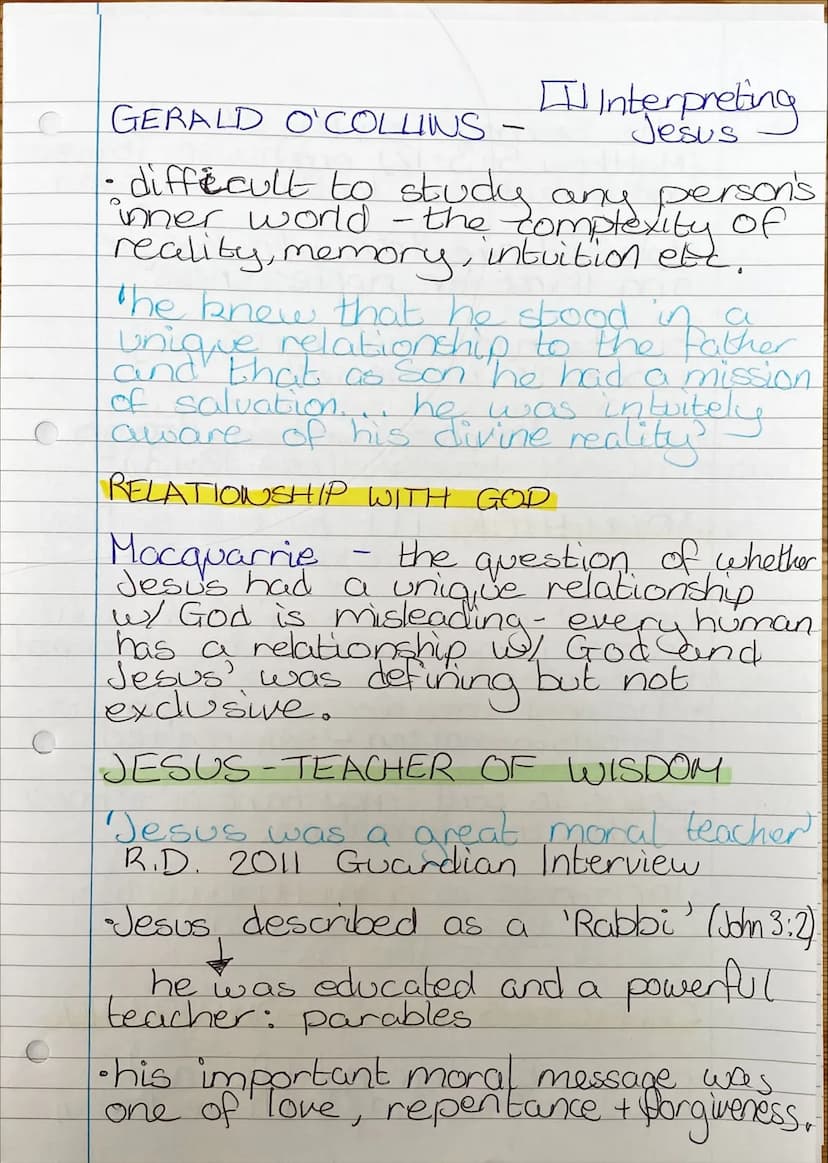 GERALD O'COLLINS - Interpreting
Jesus
· difficult to study any person's
inner world - the complexity of
reality, memory, intuition etc.
'he knew that he stood in a
unique relationship to the Father
and that as Son he had a mission
of salvation... he was intuitely
aware of his divine reality'
RELATIONSHIP WITH GOD
Macquarrie - the question of whether
Jesus had a unique relationship
w/ God is misleading - every human
has a relationship w/ God and
Jesus' was defining but not
exclusive.
JESUS - TEACHER OF WISDOM
'Jesus was a great moral teacher'
R.D. 2011 Guardian Interview
· Jesus described as a 'Rabbi' (John 3:2)
he was educated and a powerful
teacher: parables
· his important moral message was
one of love, repentance + forgiveness.